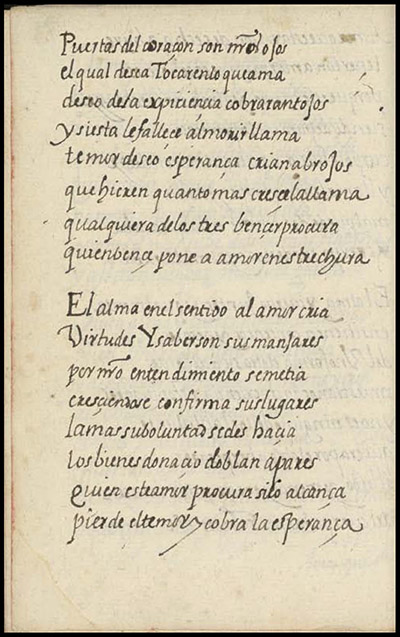 Puertas del coraçon son nr̃os ojos
el qual desea Tocar en lo que ama
deseo dela expiriencia cobra rantojos
y si esta le fallece al morir llama
temor deseo esperança crian abrojos
que hieren quanto mas cresce la llama
qualquiera delos tres bençer procura
quien bençe pone a amor en estrechura
El alma en el sentido al amor cria
Virtudes Y saber son sus manjares
por nr̃o entendimento se metia
cresçiendose confirma sus lugares
la mas su boluntad se des hazia
los bienes do naçio doblan a pares
quien este amor procura si lo alcança
pierde el temor y cobra la esperança